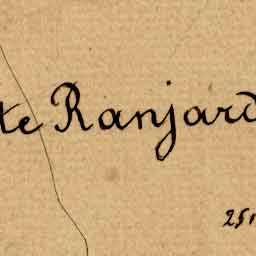 te Ranjard
25